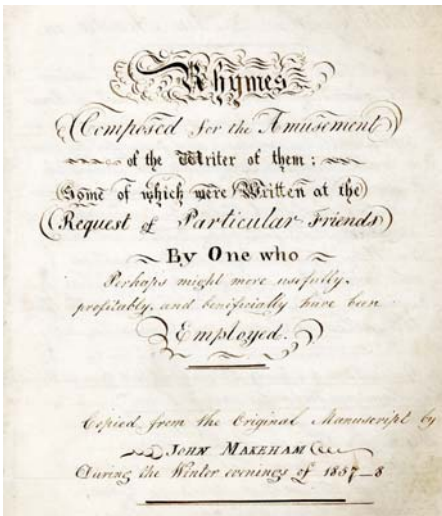 Rhymes
Composed for the Amusement
of the Writer of them;
Some of which were Written at the
Request of Particular Friends
By One who
Perhaps might more usefully,
profitably, and benificially have been
Employed.
Copied from the Original Manuscript by
JOHN MAKEHAM
During the Winter evenings of 1857_8